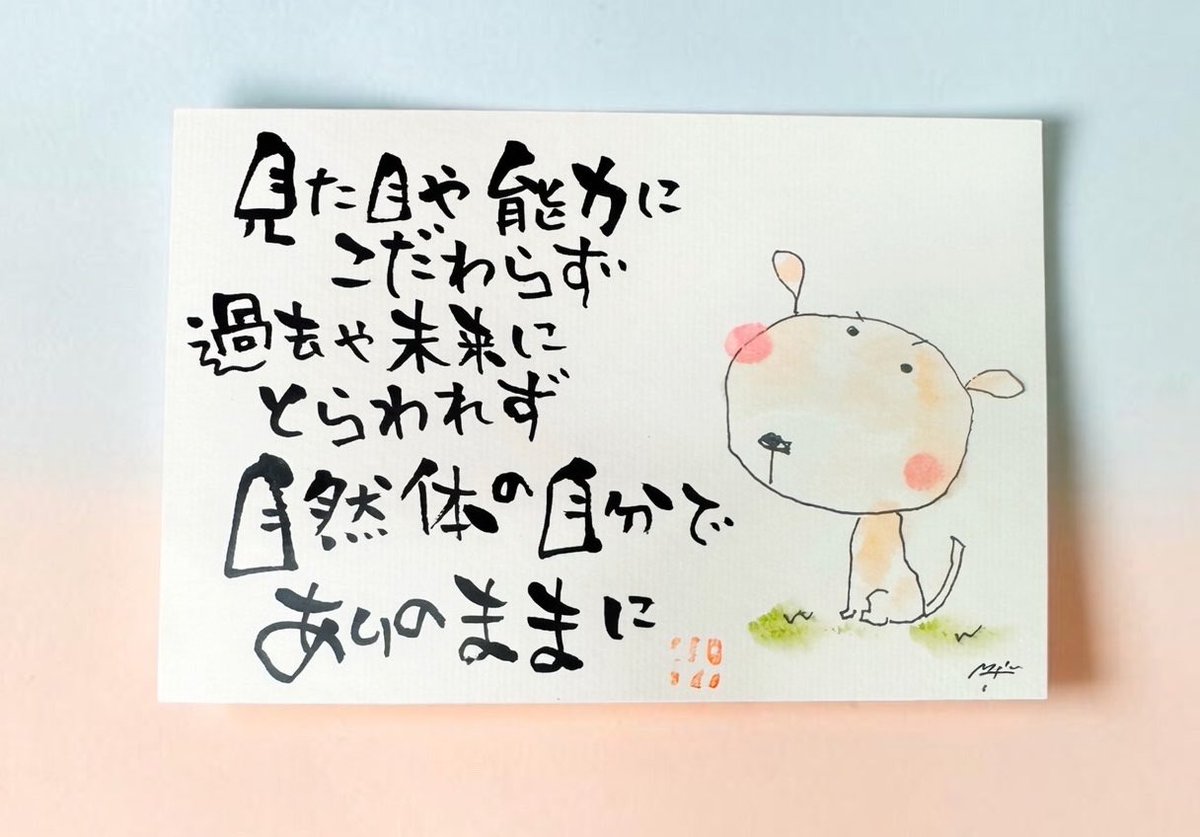 見た目や能力に
こだわらず
過去や未来に
とらわれず
自然体の自分で
ありのままに